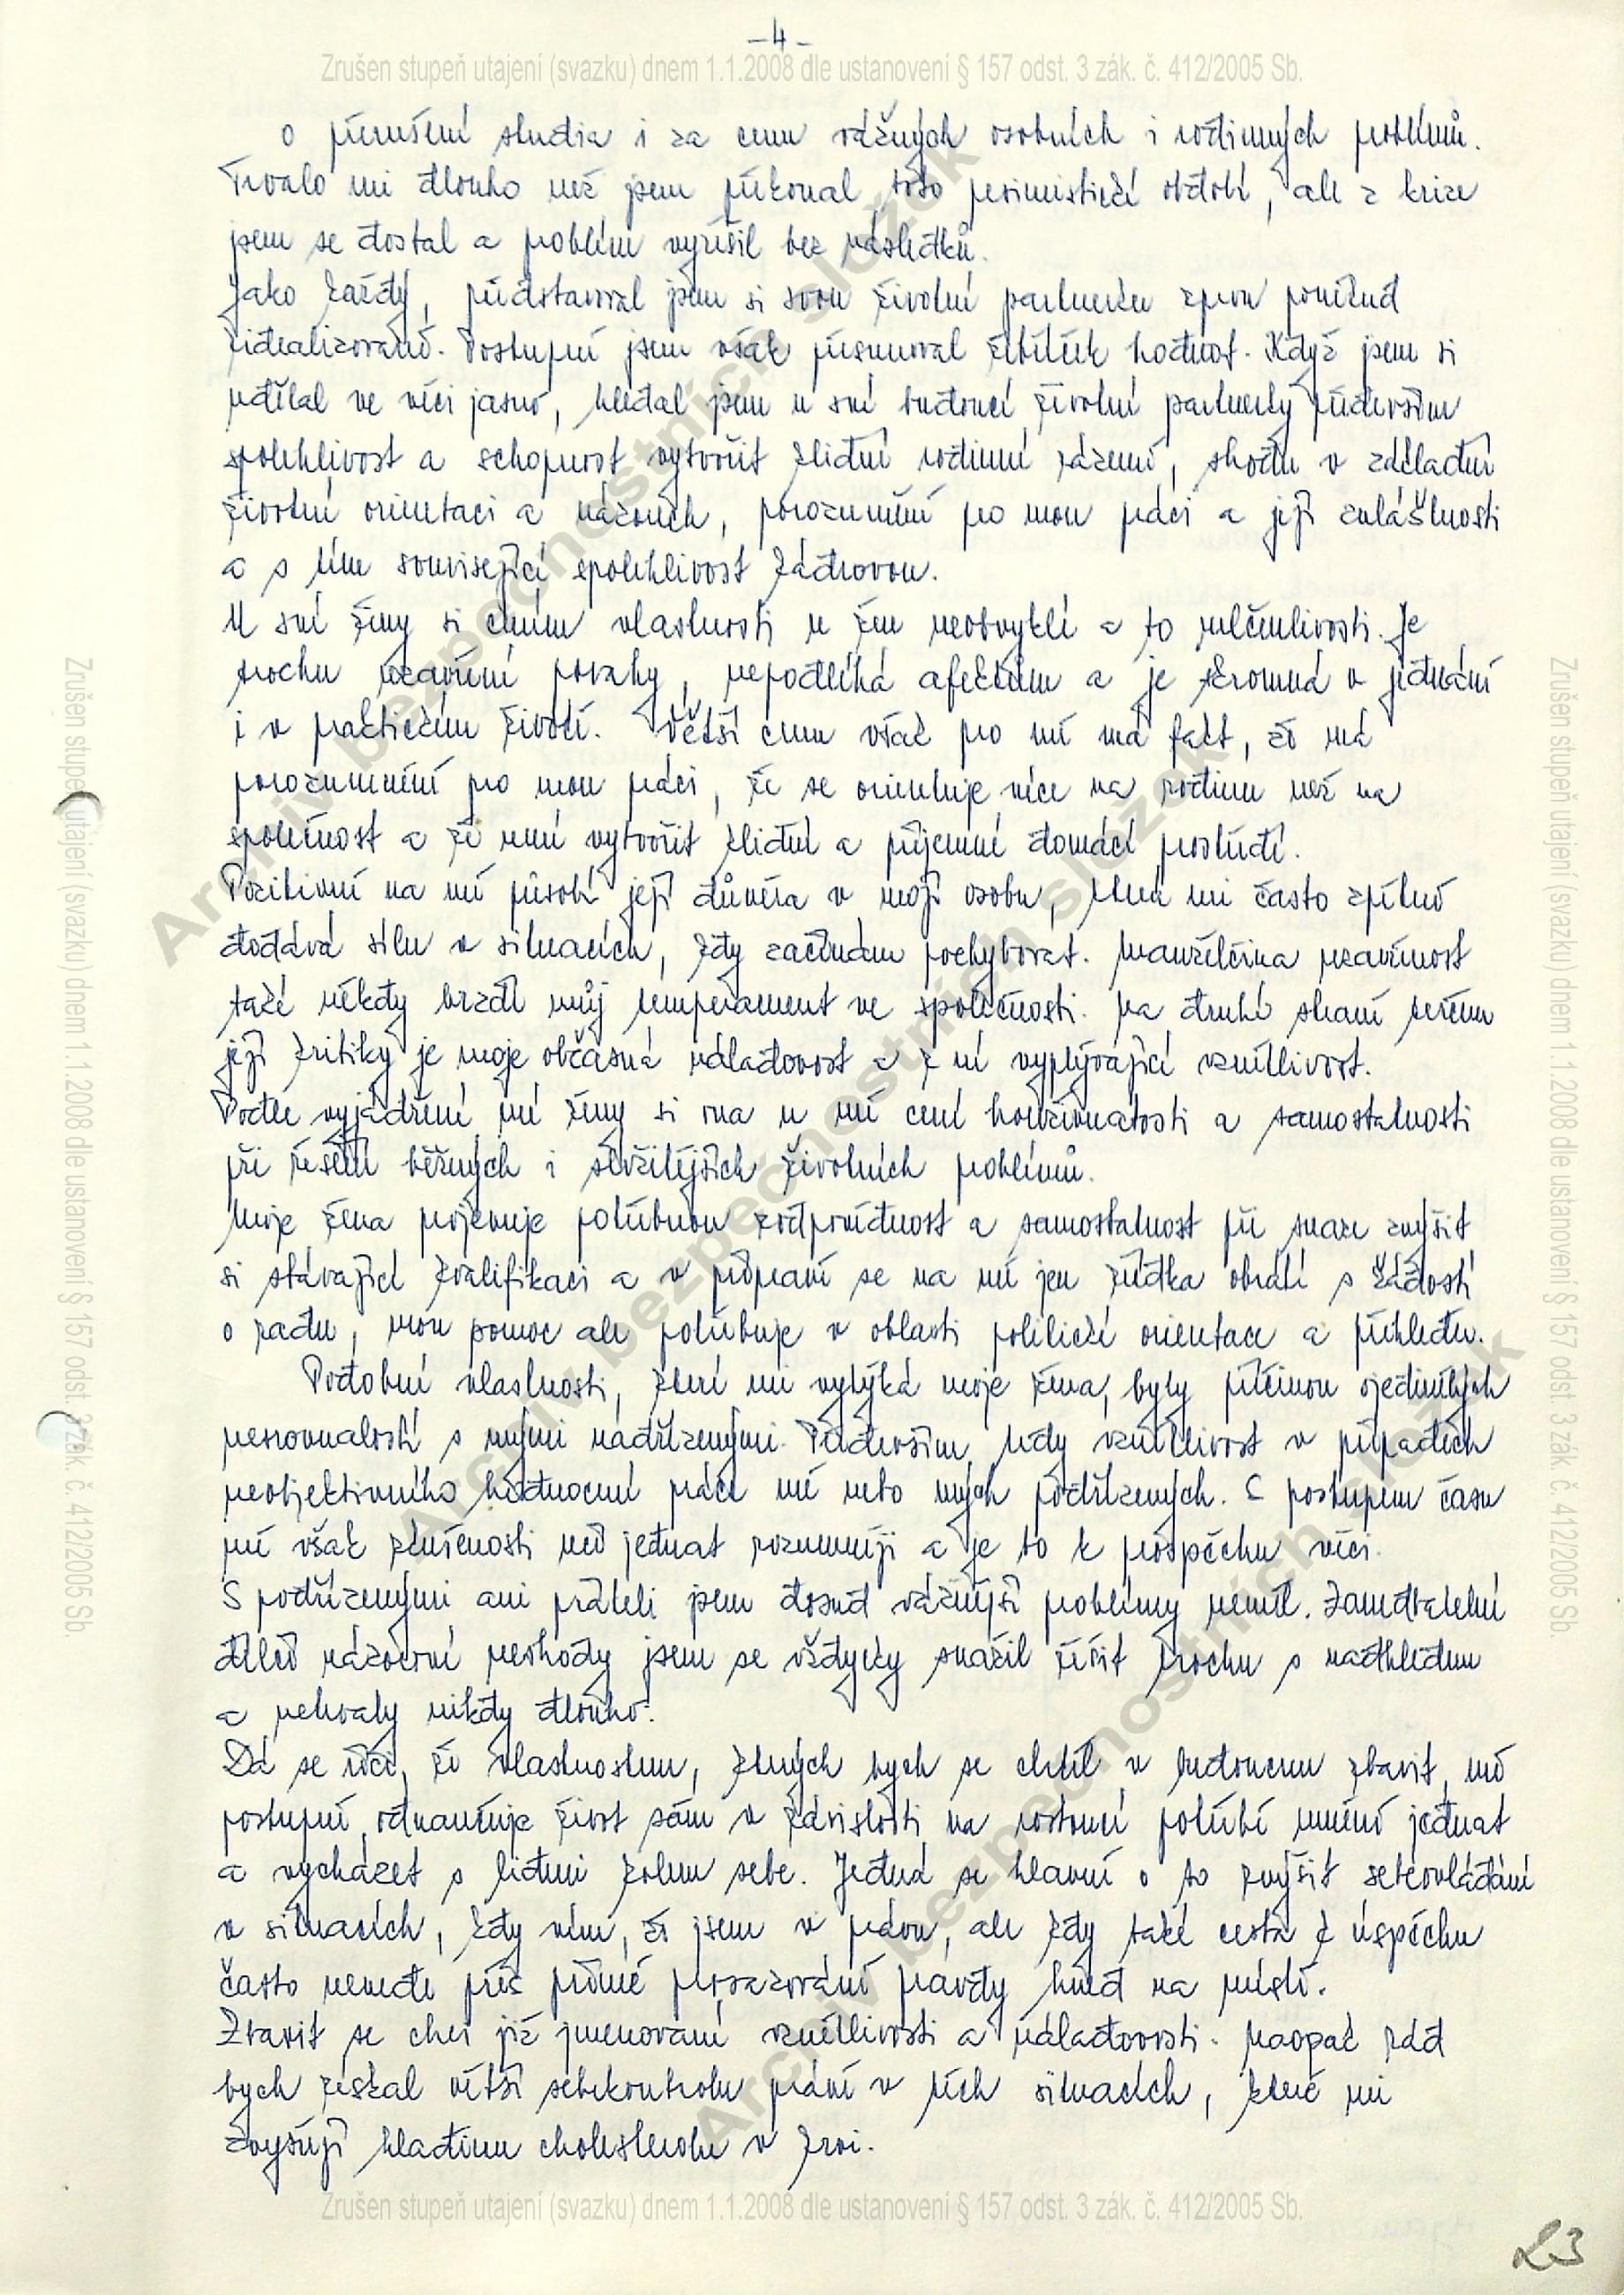 -4-
Zrušen stupeň utajení (svazku) dnem 1.1.2008 dle ustanovení § 157 odst. 3 zák. č. 412/2005 Sb.
o přerušení studia i za cenu vážných osobních i rodinných problémů.
Trvalo mi dlouho než jsem překonal toto pesimistické období, ale z krize
jsem se dostal a problém vyřešil bez následků.
Jako každý, představoval jsem si svou životní partnerku zprvu poněkud
zidealizovaně. Postupně jsem však přesunoval žebříček hodnot. Když jsem si
udělal ve věci jasno, hledal jsem u své budoucí životní partnerky především
spolehlivost a schopnost vytvořit klidné rodinné zázemí, shodu v základní
životní orientaci a názorech, porozumění pro mou práci a její zvláštnosti
a s tím související spolehlivost kádrovou.
U své ženy si cením vlastnosti u žen neobvyklé a to mlčenlivosti. Je
trochu uzavřené povahy, nepodléhá afektům a je skromná v jednání
i v praktickém životě. Větší cenu však pro mě má fakt, že má
porozumnění pro mou práci, že se orientuje více na rodinu než na
společnost a že umí vytvořit klidné a příjemné domácí prostředí.
Pozitivně na mě působí její důvěra v moji osobu, která mi často zpětně
dodává sílu v situacích, kdy začínám pochybovat. Manželčina uzavřenost
také někdy brzdí můj temperament ve společnosti. Na druhé straně terčem
její kritiky je moje občasná náladovost a z ní vyplývající vznětlivost.
Podle vyjádření mé ženy si ona u mě cení houževnatosti a samostatnosti
při řešení běžných i složitějších životních problémů.
Moje žena projevuje potřebnou zodpovědnost a samostatnost při snaze zvýšit
si stávající kvalifikaci a v přípravě se na mě jen zřídka obrátí s žádostí
o radu, mou pomoc ale potřebuje v oblasti politické orientace a přehledu.
Podobné vlastnosti, které mi vytýká moje žena, byly příčinou ojedinělých
nesrovnalostí s mými nadřízenými. Především tedy vznětlivost v případech
neobjektivního hodnocení práce mé nebo mých podřízených. S postupem času
mě však zkušenosti učí jednat rozumněji a je to k prospěchu věci.
S podřízenými ani přáteli jsem dosud vážnější problémy neměl. Zanedbatelné
dílčí názorové neshody jsem se vždycky snažil řešit trochu s nadhledem
a netrvaly nikdy dlouho.
Dá se říci, že vlastnostem, kterých bych se chtěl v budoucnu zbavit, mě
postupně odnaučuje život sám v závislosti na rostoucí potřebě umění jednat
a vycházet s lidmi kolem sebe. Jedná se hlavně o to zvýšit sebeovládání
v situacích, kdy vím, že jsem v právu, ale kdy také cesta k úspěchu
často nevede přes přímé prosazování pravdy hned na místě.
Zbavit se chci již jmenované vznětlivosti a náladovosti. Naopak rád
bych získal větší sebekontrolu právě v těch situacích, které mi
zvyšují hladinu cholesterolu v krvi.
Zrušen stupeň utajení (svazku) dnem 1.1.2008 dle ustanovení § 157 odst. 3 zák. č. 412/2005 Sb.
23
Zrušen stupeň utajení (svazku) dnem 1.1.2008 dle ustanovení § 157 odst. 3 zák. č. 412/2005 Sb.
Zrušen stupeň utajení (svazku) dnem 1.1.2008 dle ustanovení § 157 odst. 3 zák. č. 412/2005 Sb.
Archiv bezpečnostních složek
Archiv bezpečnostních složek
Archiv bezpečnostních složek